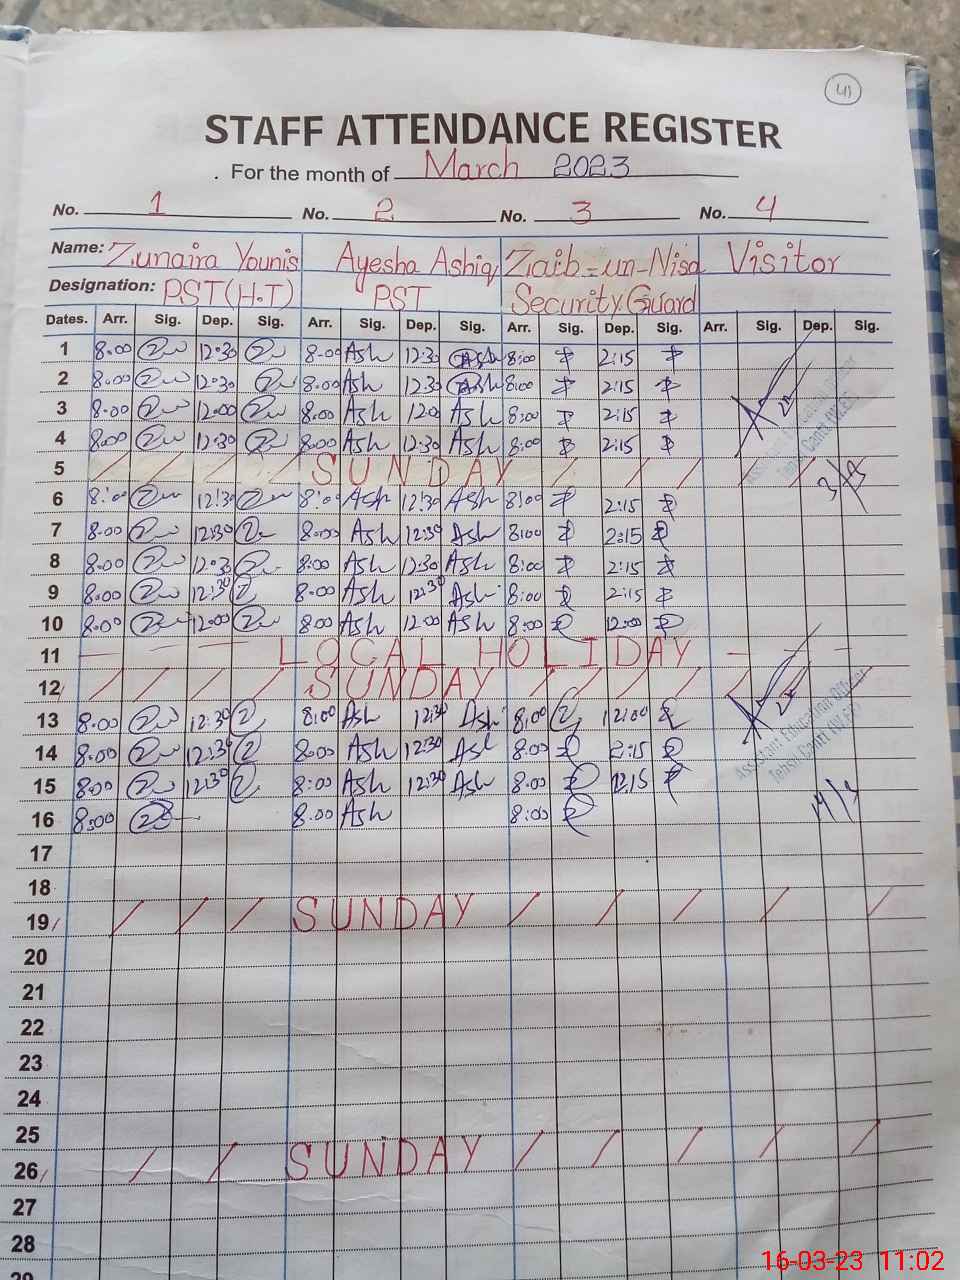 41
STAFF ATTENDANCE REGISTER
For the month of March 2023
No. 1 No. 2 No. 3 No. 4
Name: Zunaira Younis Ayesha Ashiq Zaib-un-Nisa Visitor
Designation: PST(H.T) PST Security Guard
Dates. Arr. Sig. Dep. Sig. Arr. Sig. Dep. Sig. Arr. Sig. Dep. Sig. Arr. Sig. Dep. Sig.
1 8.00 12:30 8.00 Ash 12:30 Ash 8:00 2:15
2 8.00 12:30 8.00 Ash 12:30 Ash 8:00 2:15
3 8.00 12:00 8.00 Ash 120 Ash 8:00 2:15
4 8.00 12:30 8.00 Ash 12:30 Ash 8:00 2:15
5 / / / / SUNDAY / / / / /
6 8:00 12:30 8:00 Ash 12:30 Ash 8:00 2:15
7 8.00 12:30 8.00 Ash 12:30 Ash 8:00 2:15
8 8.00 12:30 8:00 Ash 12:30 Ash 8:00 2:15
9 8.00 12:30 8.00 Ash 12:30 Ash 8:00 2:15
10 8.00 12:00 8:00 Ash 12:00 Ash 8:00 12:00
11 LOCAL HOLIDAY
12 / / / / SUNDAY / / / / /
13 8.00 12:30 8:00 Ash 12:30 Ash 8:00 12:00
14 8.00 12:30 8.00 Ash 12:30 Ash 8:00 2:15
15 8.00 12:30 8:00 Ash 12:30 Ash 8.00 12:15
16 8:00 8.00 Ash 8:00
17
18
19 / / / SUNDAY / / / / /
20
21
22
23
24
25
26 / / SUNDAY / / / / /
27
28
29
Assistant Education Officer
Assistant Education Officer
16-03-23 11:02